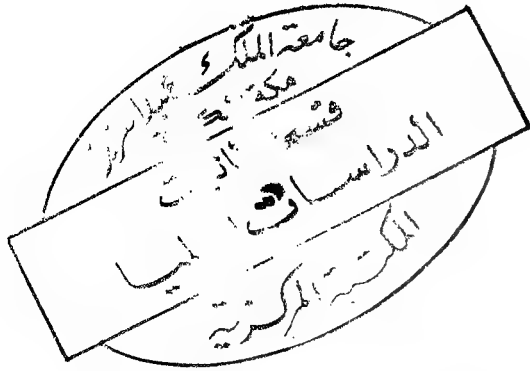 جامعة الملك عبدالعزيز
مكة
قسم
الدراسات العليا
المكتبة المركزية